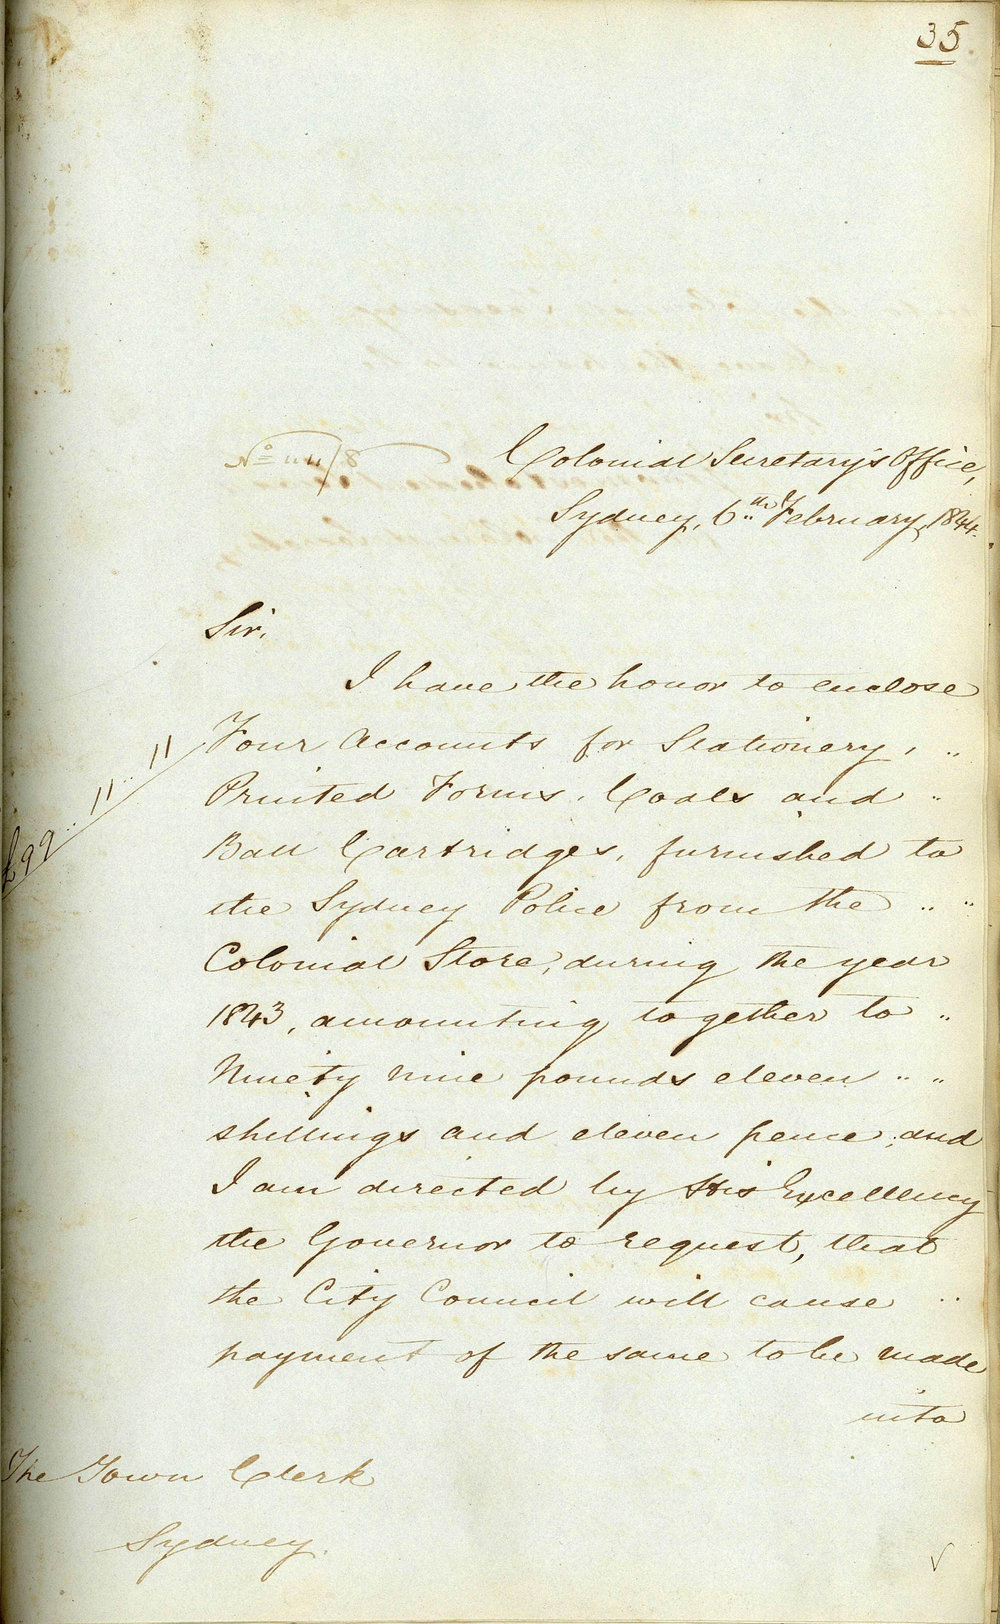 35
Colonial Secretary's Office,
Sydney, 6th February, 1844.
Sir,
I have the honor to enclose
Four Accounts for Stationery, "
Printed Forms, Coals and "
Ball Cartridges, furnished to
the Sydney Police from the " "
Colonial Store, during the year
1843, amounting together to "
Ninety nine pounds eleven " "
shillings and eleven pence; and
I am directed by His Excellency
the Governor to request, that
the City Council will cause "
payment of the same to be made
into
£99 .. 11 .. 11
The Town Clerk
Sydney.